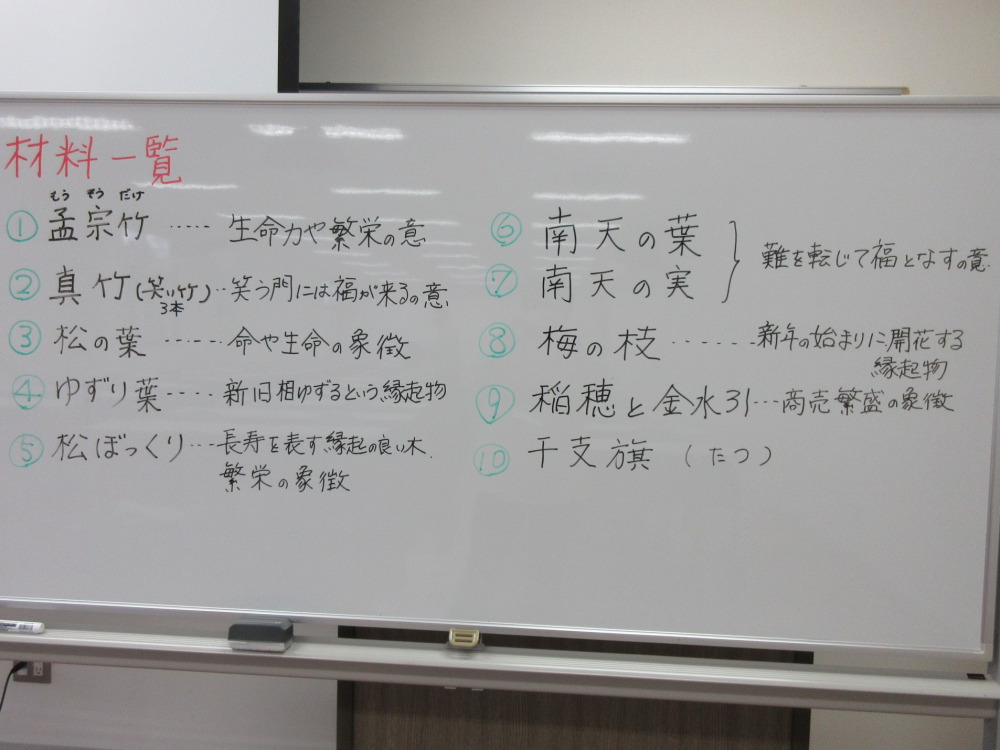 材料一覧
もう そう だけ
① 孟宗竹 ‥‥‥ 生命力や繁栄の意
② 真竹(笑い竹)‥笑う門には福が来るの意
3本
③ 松の葉 ‥‥‥ 命や生命の象徴
④ ゆずり葉 ‥‥ 新旧相ゆずるという縁起物
⑤ 松ぼっくり ‥‥ 長寿を表す縁起の良い木.
繁栄の象徴
⑥ 南天の葉
⑦ 南天の実
難を転じて福となすの意.
⑧ 梅の枝 ‥‥‥‥ 新年の始まりに開花する
縁起物
⑨ 稲穂と金水引 ‥‥ 商売繁盛の象徴
⑩ 干支旗 (たつ)